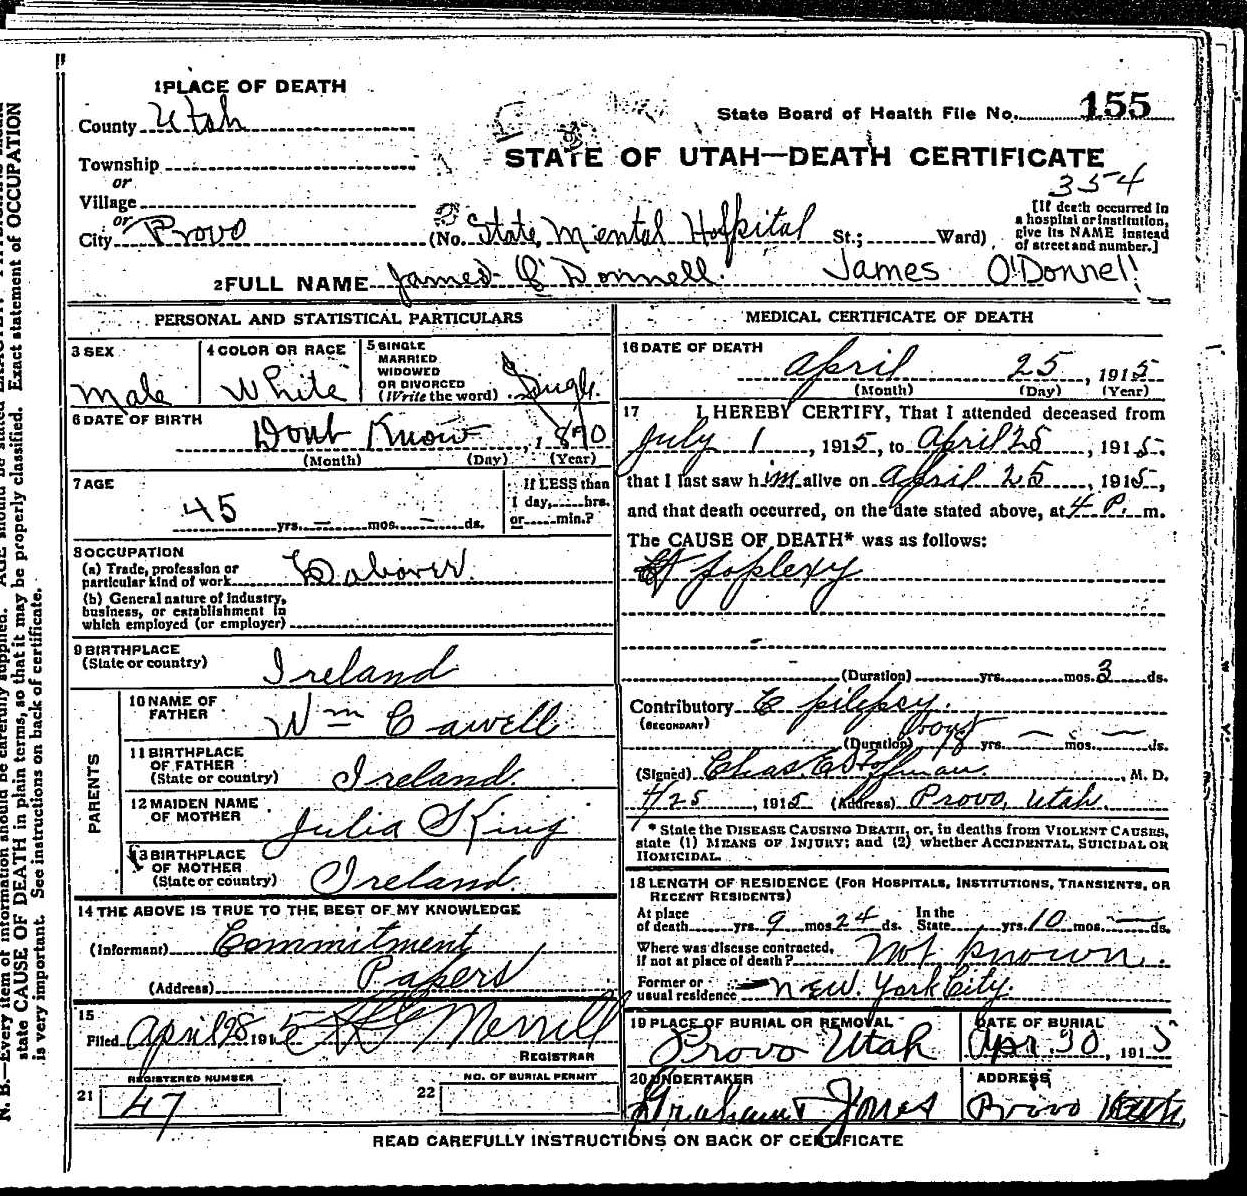 1 PLACE OF DEATH
County Utah
State Board of Health File No. 155
STATE OF UTAH—DEATH CERTIFICATE
Township
or
Village
or
City Provo
(No. State Mental Hospital St.; Ward)
354
[If death occurred in
a hospital or institution,
give its NAME instead
of street and number.]
2 FULL NAME James O'Donnell. James O'Donnell
PERSONAL AND STATISTICAL PARTICULARS
3 SEX
Male
4 COLOR OR RACE
White
5 SINGLE
MARRIED
WIDOWED
OR DIVORCED
(Write the word) Single
6 DATE OF BIRTH
Dont Know, 1870
(Month) (Day) (Year)
7 AGE
45 yrs. — mos. — ds.
If LESS than
1 day, hrs.
or min.?
8 OCCUPATION
(a) Trade, profession or
particular kind of work Laborer.
(b) General nature of industry,
business, or establishment in
which employed (or employer)
9 BIRTHPLACE
(State or country)
Ireland
PARENTS
10 NAME OF
FATHER
Wm Cawell
11 BIRTHPLACE
OF FATHER
(State or country) Ireland.
12 MAIDEN NAME
OF MOTHER
Julia King
13 BIRTHPLACE
OF MOTHER
(State or country) Ireland.
14 THE ABOVE IS TRUE TO THE BEST OF MY KNOWLEDGE
(Informant) Commitment
(Address) Papers
15
Filed April 28 1915 Merrill
REGISTRAR
REGISTERED NUMBER
21 47
NO. OF BURIAL PERMIT
22
MEDICAL CERTIFICATE OF DEATH
16 DATE OF DEATH
April 25, 1915
(Month) (Day) (Year)
17 I HEREBY CERTIFY, That I attended deceased from
July 1, 1915, to April 25, 1915.
that I last saw him alive on April 25, 1915,
and that death occurred, on the date stated above, at 4 P. m.
The CAUSE OF DEATH* was as follows:
Apoplexy
(Duration) yrs. mos. 3 ds.
Contributory Epilepsy.
(SECONDARY)
(Duration) yrs. — mos. — ds.
(Signed) Chas. E Hoffman. M. D.
4/25, 1915 (Address) Provo, Utah.
* State the DISEASE CAUSING DEATH, or, in deaths from VIOLENT CAUSES,
state (1) MEANS OF INJURY; and (2) whether ACCIDENTAL, SUICIDAL OR
HOMICIDAL.
18 LENGTH OF RESIDENCE (FOR HOSPITALS, INSTITUTIONS, TRANSIENTS, OR
RECENT RESIDENTS)
At place
of death yrs. 9 mos. 24 ds.
In the
State yrs. 10 mos. — ds.
Where was disease contracted,
if not at place of death? Not known.
Former or
usual residence New York City.
19 PLACE OF BURIAL OR REMOVAL
Provo Utah
DATE OF BURIAL
Apr. 30, 1915
20 UNDERTAKER
Graham & Jones
ADDRESS
Provo Utah
READ CAREFULLY INSTRUCTIONS ON BACK OF CERTIFICATE
N. B.—Every item of information should be carefully supplied. AGE should be stated EXACTLY.
state CAUSE OF DEATH in plain terms, so that it may be properly classified. Exact statement of OCCUPATION
is very important. See instructions on back of certificate.